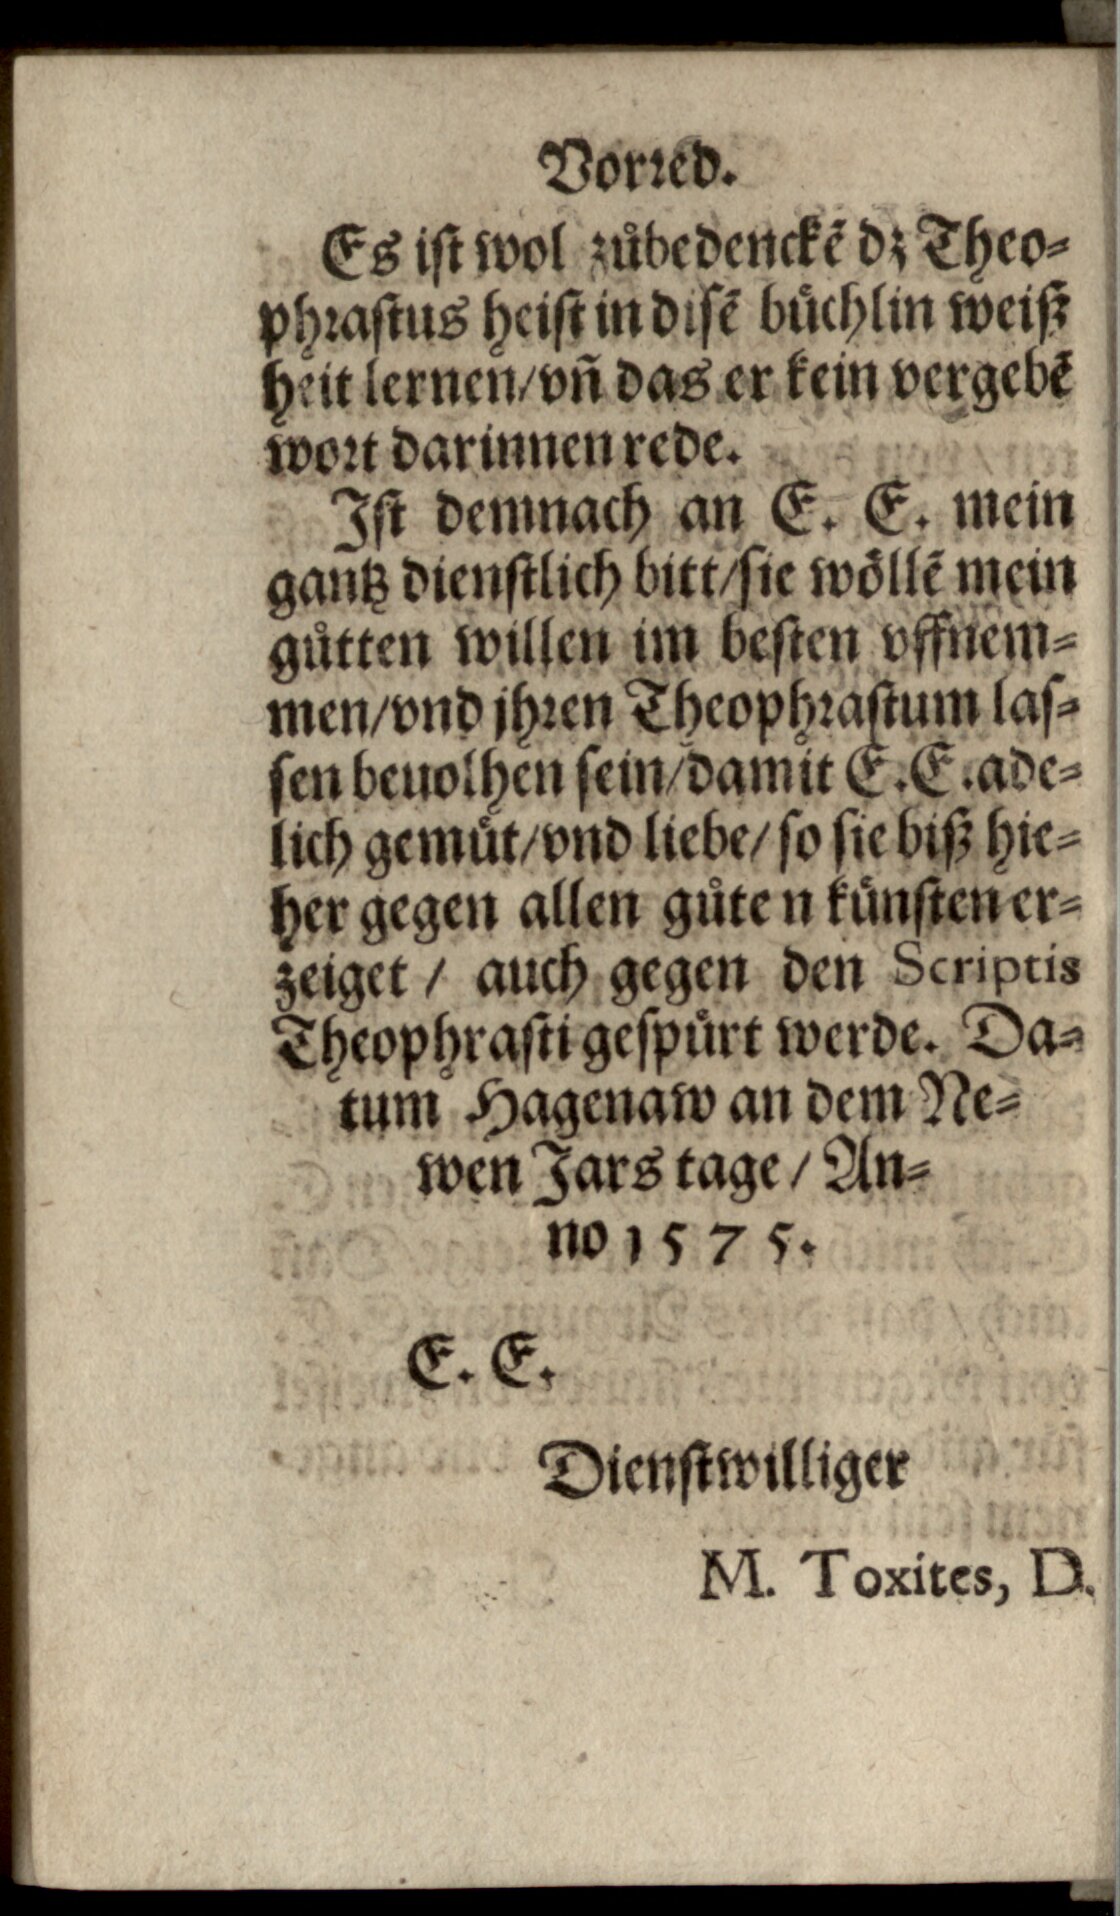 Vorred.
Es ist wol zůbedenckẽ dz Theo-
phrastus heist in disẽ bůchlin weiß
heit lernen/vñ das er kein vergebẽ
wort darinnen rede.
Ist demnach an E. E. mein
gantz dienstlich bitt/sie wöllẽ mein
gůtten willen im besten vffnem-
men/vnd jhren Theophrastum las-
sen beuolhen sein/damit E.E.ade-
lich gemůt/vnd liebe/so sie biß hie-
her gegen allen gůten künsten er-
zeiget / auch gegen den Scriptis
Theophrasti gespůrt werde. Da-
tum Hagenaw an dem Ne-
wen Jars tage / An-
no 1575.
E. E.
Dienstwilliger
M. Toxites, D.